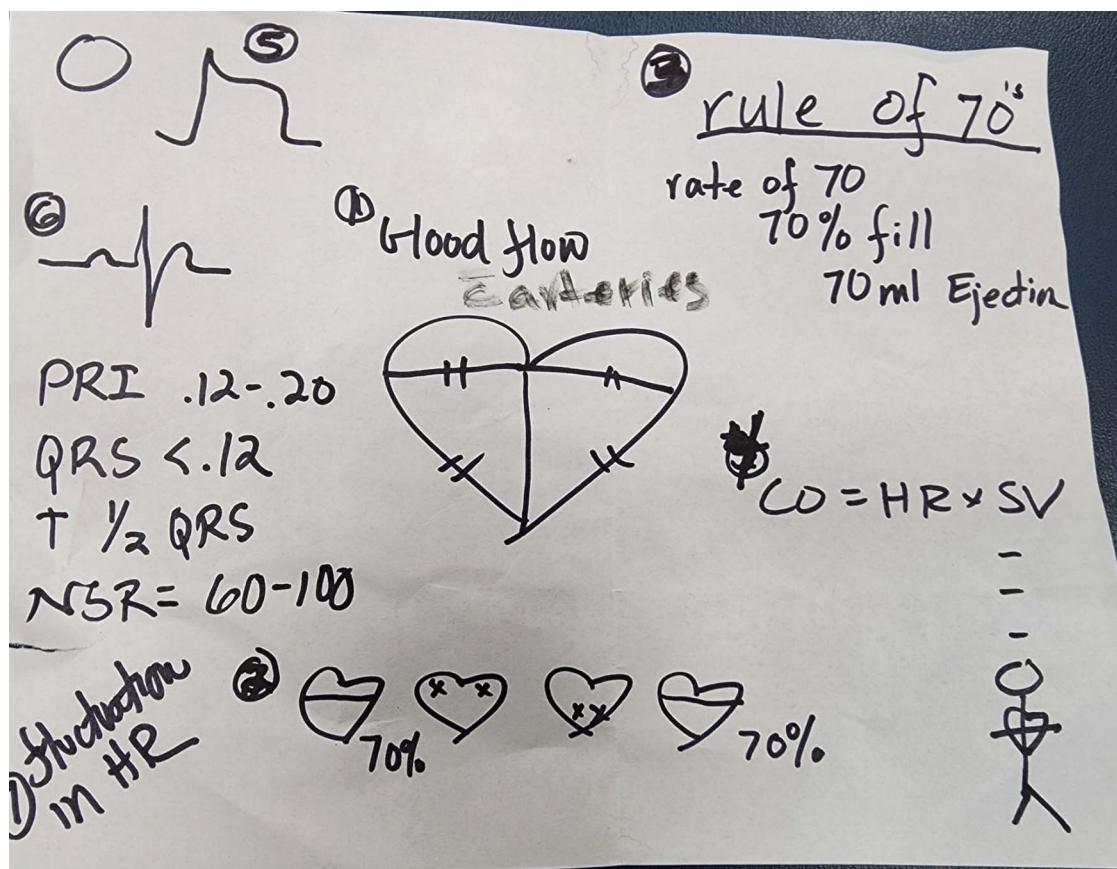 5
3 rule of 70's
rate of 70
70% fill
70 ml Ejection
6
1 Blood flow
c arteries
PRI .12-.20
QRS <.12
T 1/2 QRS
NSR= 60-100
CO = HR x SV
-
-
-
2
x x
x x
70%
70%
7 fluctuation
in HR